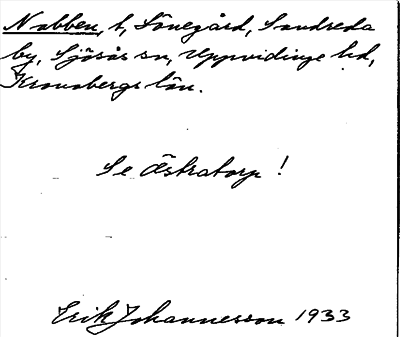 Nabben, t, Lönegård, Sandreda
by, Sjösås sn, Uppvidinge hd,
Kronobergs län.
Se Åstratorp !
Erik Johannesson 1933